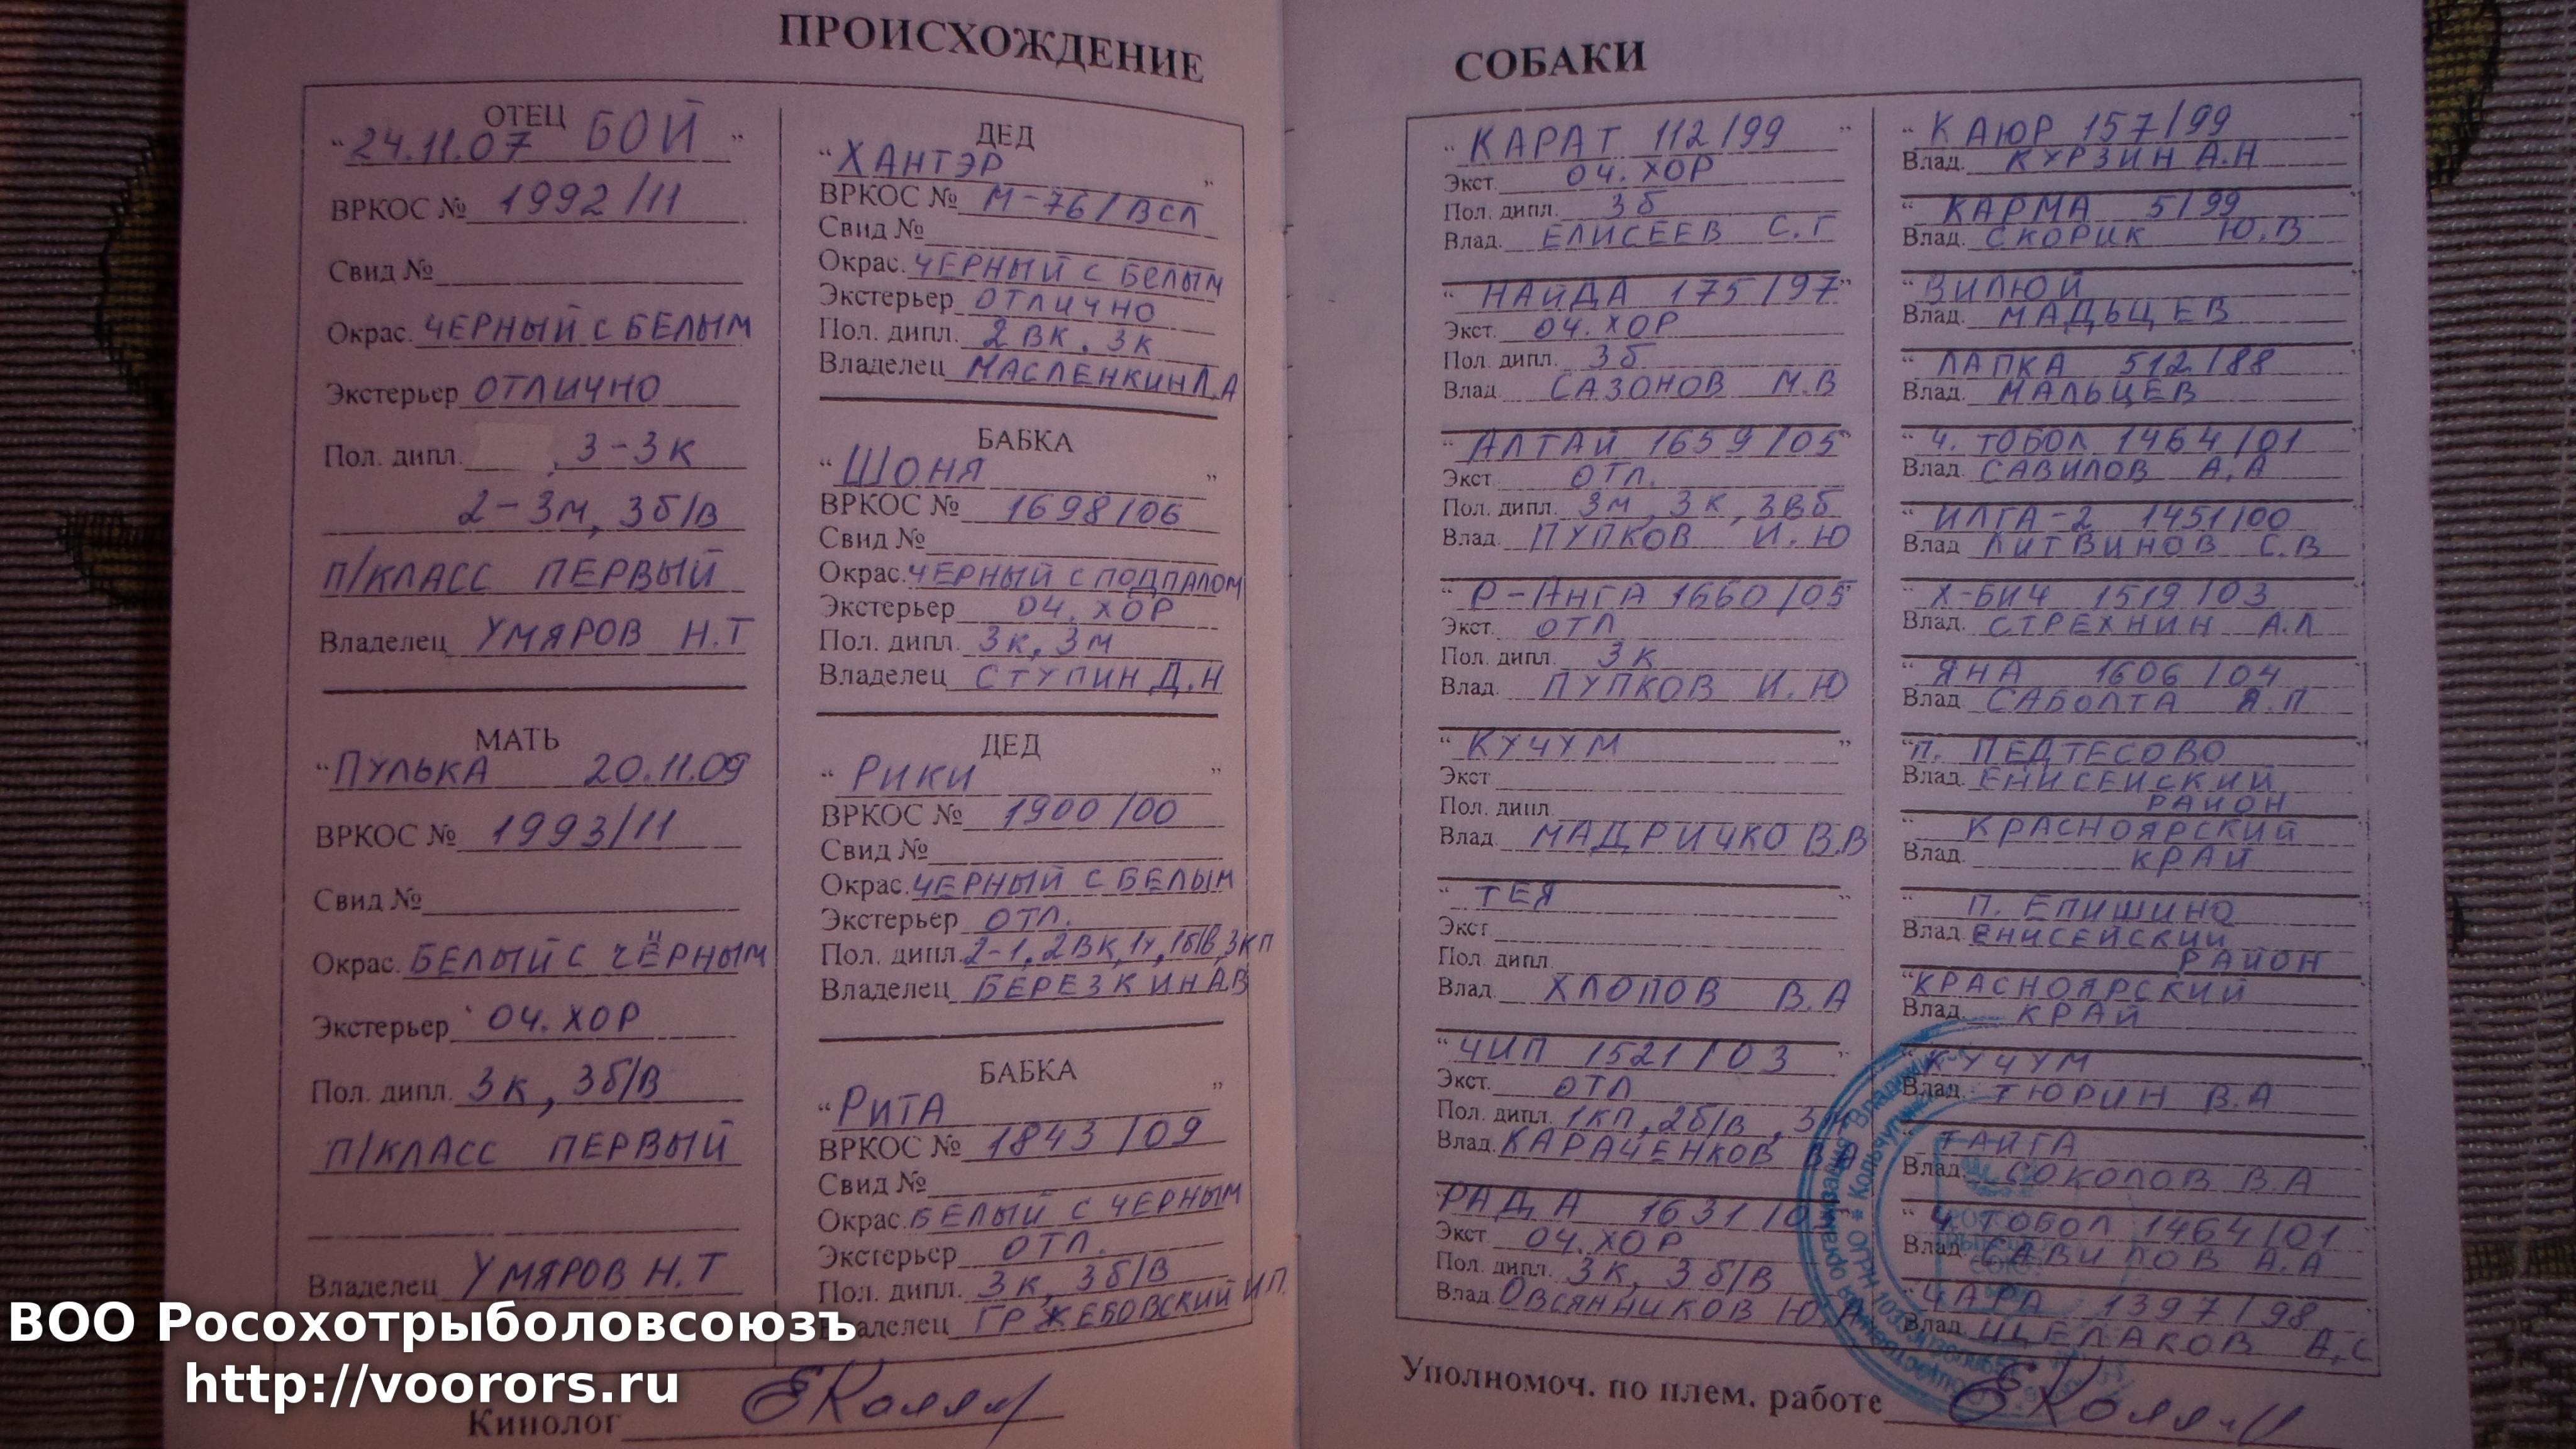 ПРОИСХОЖДЕНИЕ
ОТЕЦ
"24.11.07 БОЙ"
ВРКОС № 1992/11
Свид №
Окрас. ЧЕРНЫЙ С БЕЛЫМ
Экстерьер ОТЛИЧНО
Пол. дипл. , 3-3К
2-3М, 3Б/В
П/КЛАСС ПЕРВЫЙ
Владелец УМЯРОВ Н.Т
МАТЬ
"ПУЛЬКА 20.11.09
ВРКОС № 1993/11
Свид №
Окрас. БЕЛЫЙ С ЧЁРНЫМ
Экстерьер ОЧ. ХОР
Пол. дипл. 3К, 3Б/В
П/КЛАСС ПЕРВЫЙ
Владелец УМЯРОВ Н.Т
ДЕД
"ХАНТЭР"
ВРКОС № М-76/ВСЛ
Свид №
Окрас. ЧЕРНЫЙ С БЕЛЫМ
Экстерьер ОТЛИЧНО
Пол. дипл. 2 ВК, 3К
Владелец МАСЛЕНКИН Л.А
БАБКА
"ШОНЯ"
ВРКОС № 1698/06
Свид №
Окрас. ЧЕРНЫЙ С ПОДПАЛОМ
Экстерьер ОЧ. ХОР
Пол. дипл. 3К, 3М
Владелец СТУПИН Д.Н
ДЕД
"РИКИ"
ВРКОС № 1900/00
Свид №
Окрас. ЧЕРНЫЙ С БЕЛЫМ
Экстерьер ОТЛ.
Пол. дипл. 2-1, 2ВК, 1У, 1Б/В, 3КП
Владелец БЕРЕЗКИН А.В
БАБКА
"РИТА"
ВРКОС № 1843/09
Свид №
Окрас. БЕЛЫЙ С ЧЕРНЫМ
Экстерьер ОТЛ.
Пол. дипл. 3К, 3Б/В
Владелец ГРЖЕБОВСКИЙ И.П.
Кинолог
СОБАКИ
"КАРАТ 112/99"
Экст. ОЧ. ХОР
Пол. дипл. 3Б
Влад. ЕЛИСЕЕВ С.Г
"НАЙДА 175/97"
Экст. ОЧ. ХОР
Пол. дипл. 3Б
Влад. САЗОНОВ М.В
"АЛТАЙ 1659/05"
Экст. ОТЛ.
Пол. дипл. 3М, 3К, 3ВБ
Влад. ПУПКОВ И.Ю
"Р-АНГА 1660/05"
Экст. ОТЛ
Пол. дипл. 3К
Влад. ПУПКОВ И.Ю
"КУЧУМ"
Экст
Пол. дипл
Влад. МАДРИЧКО В.В
"ТЕЯ"
Экст
Пол. дипл.
Влад. ХЛОПОВ В.А
"ЧИП 1521/03"
Экст. ОТЛ
Пол. дипл. 1КП, 2Б/В,
Влад. КАРАЧЕНКОВ В.А
РАДА 1631/0
Экст ОЧ. ХОР
Пол. дипл. 3К, 3Б/В
Влад. ОВСЯННИКОВ Ю.А
"КАЮР 157/99
Влад. КУРЗИН А.Н
"КАРМА 5/99
Влад. СКОРИК Ю.В
"ВИЛЮЙ
Влад. МАДЬЦЕВ
"ЛАПКА 512/88
Влад. МАЛЬЦЕВ
"Ч. ТОБОЛ 1464/01
Влад. САВИЛОВ А.А
"ИЛГА-2 1451/00
Влад ЛИТВИНОВ С.В
"Х-БИЧ 1519/03
Влад. СТРЕХНИН А.Л
"ЯНА 1606/04
Влад. САБОЛТА Я.П
"П. ПЕДТЕСОВО
Влад. ЕНИСЕЙСКИЙ
РАЙОН
КРАСНОЯРСКИЙ
Влад. КРАЙ
П. ЕПИШИНО
Влад. ЕНИСЕЙСКИЙ
РАЙОН
"КРАСНОЯРСКИЙ
Влад. КРАЙ
"КУЧУМ
Влад. ТЮРИН В.А
"ТАЙГА
Влад. СОКОЛОВ В.А
"Ч. ТОБОЛ 1464/01
Влад. САВИЛОВ А.А
"ЧАРА 1397/98
Влад. ЩЕЛАКОВ А.С
Уполномоч. по плем. работе
ВОО Росохотрыболовсоюзъ
http://voorors.ru